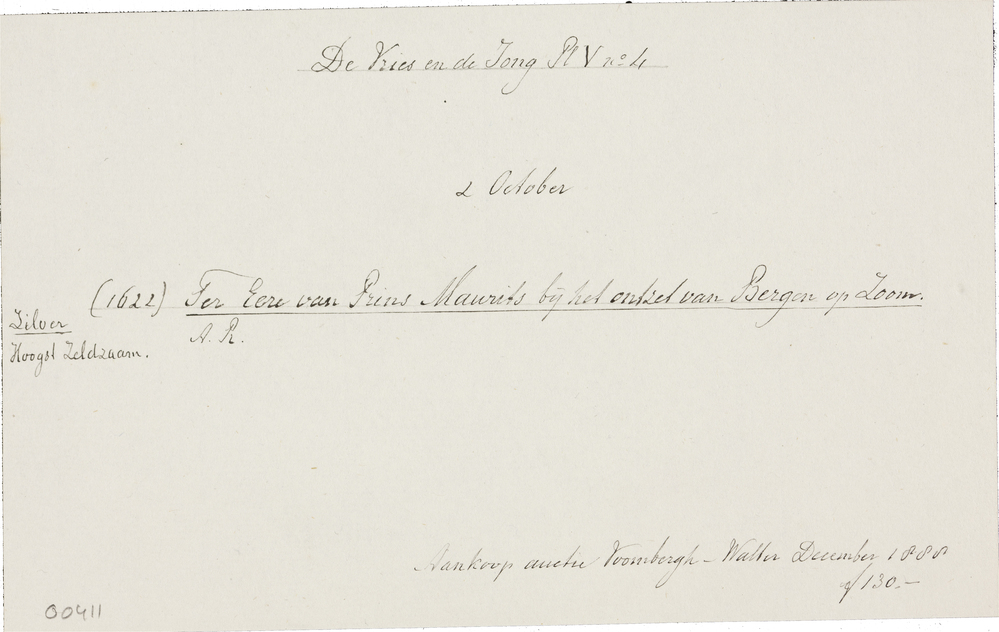 De Vries en de Jong Pl V no 4
2 October
(1622) Ter Eere van Prins Maurits bij het ontzet van Bergen op Zoom.
Zilver
A. R.
Hoogst Zeldzaam.
Aankoop auctie Voombergh - Walter December 1888
f 130.-
00411